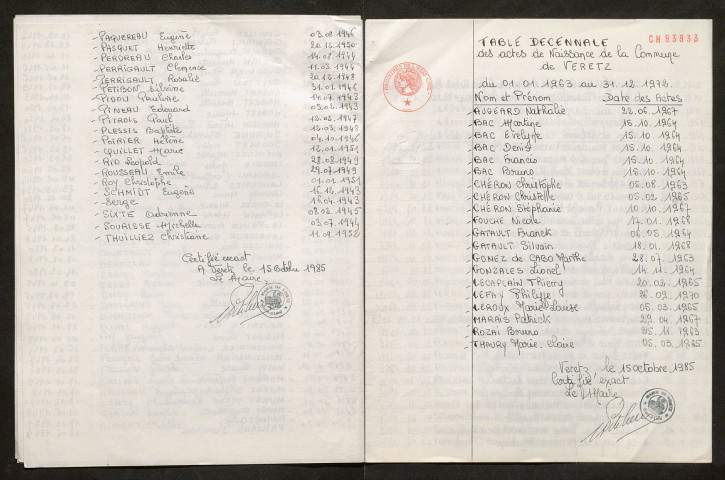 - PAQUEREAU Eugène 03.08.1946
- PASQUET Henriette 20.12.1950
- PERDREAU Charles 14.08.1944
- PERRIGAULT Clémence 11.03.1944
- PERRIGAULT Rosalie 20.12.1948
- PETIBON Silvine 31.01.1946
- PIDOU Pauline 14.07.1943
- PINEAU Edouard 05.03.1943
- PITROIS Paul 1947
- PLESSIS Baptiste 1948
- POIRIER Hélène 04.10.1946
- QUILLET Marie 12.01.1951
- RIO Léopold 28.08.1949
- ROUSSEAU Emile 29.07.1949
- ROY Christophe 01.01.1951
- SCHMIDT Eugène 16.12.1943
- Serge 16.04.1943
- SUTE 08.02.1945
- SOURISSE Michelle 03.07.1944
- THUILLIEZ Christiane 11.09.1952
Certifié exact
A Veretz le 15 Octobre 1985
Le Maire
CH 93933
TABLE DECENNALE
des actes de Naissance de la Commune
de VERETZ
du 01.01.1963 au 31.12.1972.
Nom et Prénom Date des Actes
- AUGEARD Nathalie 22.06.1967
- BAC Martine 15.10.1964
- BAC Evelyne 15.10.1964
- BAC Denis 15.10.1964
- BAC Francis 15.10.1964
- BAC Bruno 15.10.1964
- CHÉRON Christophe 05.08.1963
- CHÉRON Christelle 05.02.1965
- CHÉRON Stéphanie 10.10.1967
- FOUCHE Nicole 17.01.1968
- GATAULT Franck 06.05.1964
- GATAULT Silvain 18.01.1968
- GOMEZ de GABO Marthe 28.07.1963
- GONZALES Lionel 14.11.1964
- LECAPLAIN Thierry 20.03.1965
- LEFAY Philippe 26.09.1970
- LEROUX Marie Louise 05.03.1965
- MARAIS Patrick 29.04.1967
- ROZAI Bruno 25.11.1963
- THAURY Marie-Claire 05.03.1965
Veretz le 15 octobre 1985
Certifié exact
Le Maire